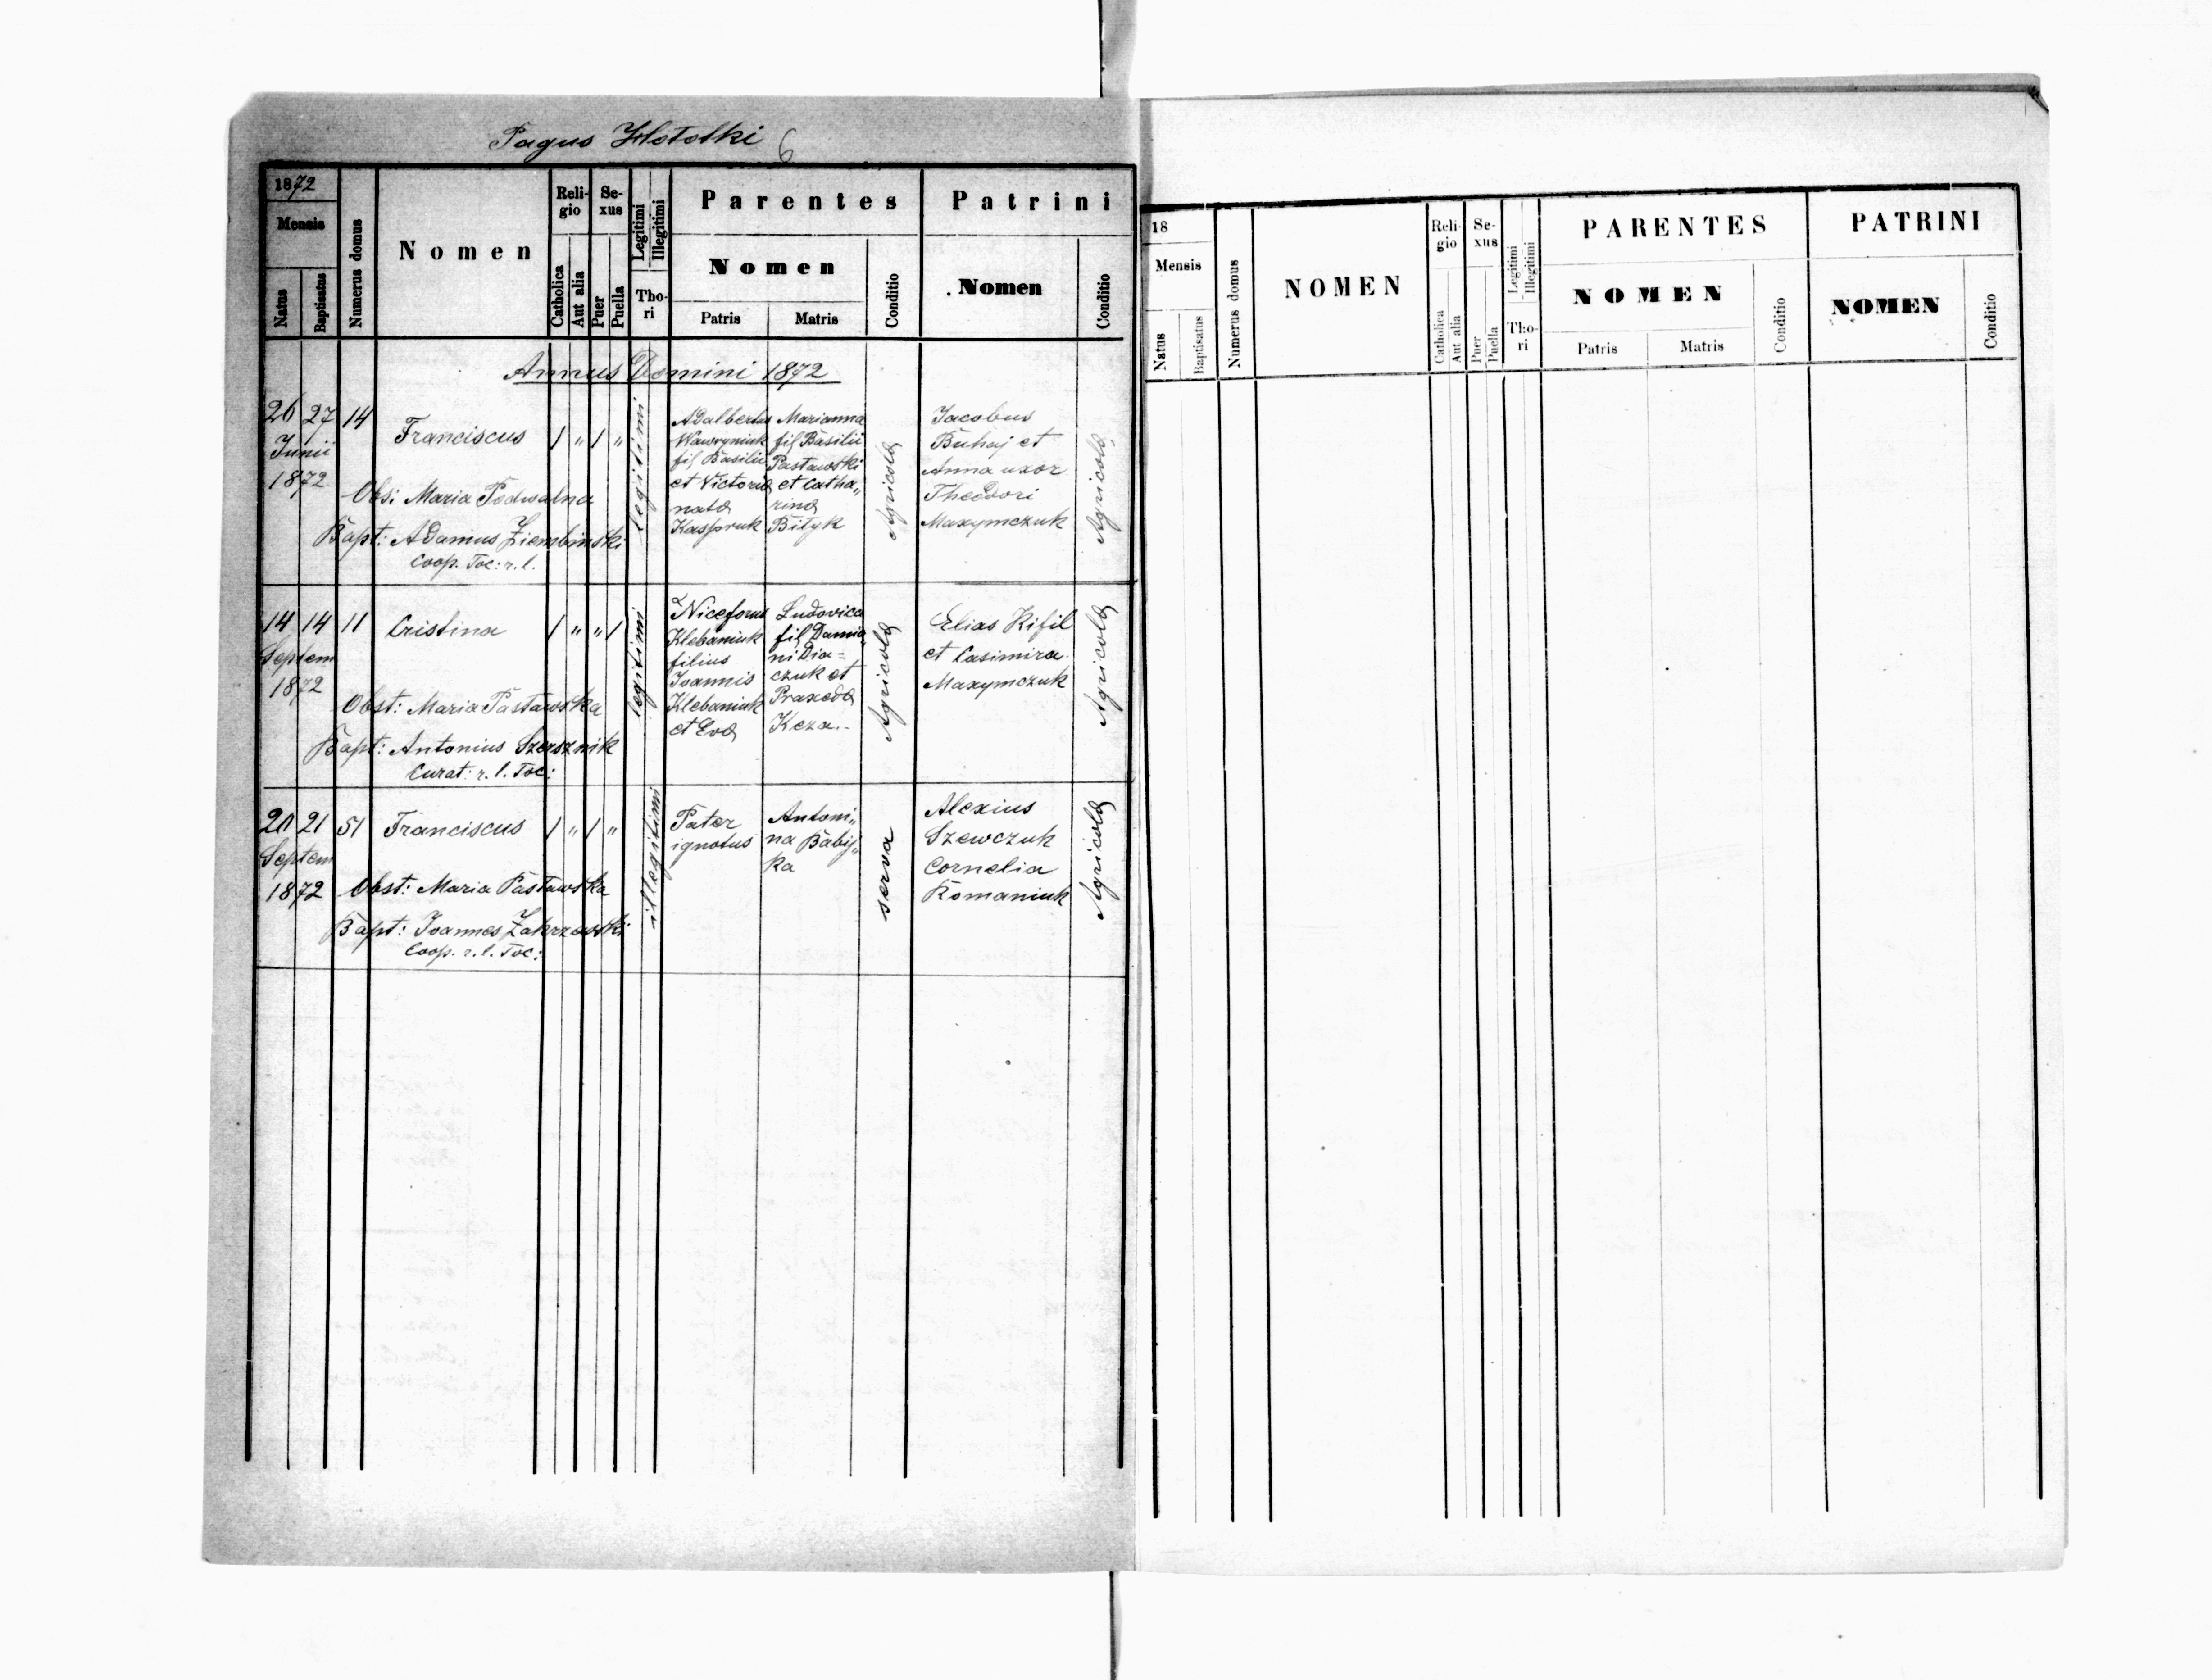 Pagus Hlotolki 6
1872
Mensis
Natus
Baptisatus
Numerus domus
Nomen
Reli-
gio
Catholica
Aut alia
Se-
xus
Puer
Puella
Legitimi
Illegitimi
Tho-
ri
Parentes
Nomen
Patris
Matris
Conditio
Patrini
Nomen
Conditio
Annus Domini 1872
26 27 14
Junii
1872
Franciscus / " / "
legitimi
Obs: Maria Podwalna
Bapt: Adamus Ziembinski
Coop. Toc: r. l.
Adalbertus
Wawryniuk
fil Basilii
et Victoria
nata
Kaspruk
Marianna
fil Basilii
Pastawski
et Catha„
rina
Bityk
Agricola
Jacobus
Buhaj et
Anna uxor
Theodori
Maxymczuk
Agricola
14 14 11
Septem
1872
Cristina / " " /
legitimi
Obst: Maria Pastawska
Bapt: Antonius Szersznik
Curat: r. l. Toc:
Niceforus
Klebaniuk
filius
Joannis
Klebaniuk
et Eva
Ludovica
fil Damia„
ni Dia=
czuk et
Praxeda
Keza.-
Agricola
Elias Kifil
et Casimira
Maxymczuk
Agricola
20 21 51
Septem
1872
Franciscus / " / "
illegitimi
Obst: Maria Pastawska
Bapt: Joannes Zakrzewski
Coop. r. l. Toc:
Pater
ignotus
Antoni„
na Babij„
ka
serva
Alexius
Szewczuk
Cornelia
Romaniuk
Agricola
18
Mensis
Natus
Baptisatus
Numerus domus
NOMEN
Reli-
gio
Catholica
Aut alia
Se-
xus
Puer
Puella
Legitimi
Illegitimi
Tho-
ri
PARENTES
NOMEN
Patris
Matris
Conditio
PATRINI
NOMEN
Conditio